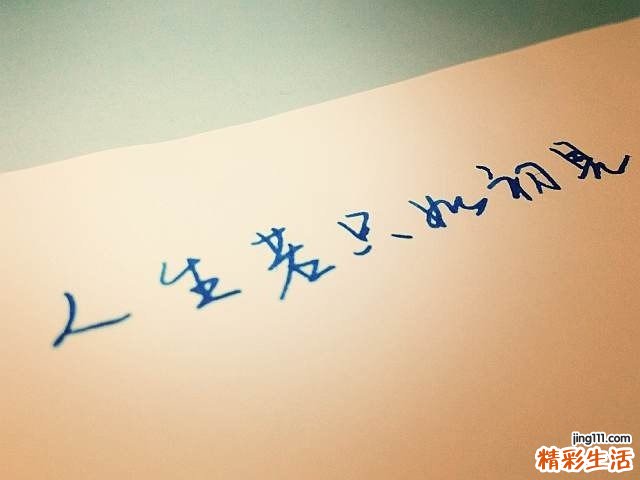 人生若只如初见
jing111.com
精彩生活